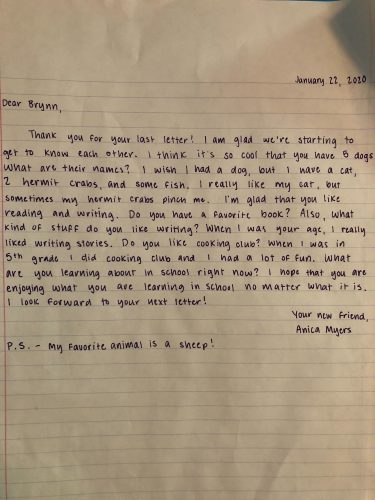 January 22, 2020
Dear Brynn,
Thank you for your last letter! I am glad we're starting to
get to know each other. I think it's so cool that you have 5 dogs
What are their names? I wish I had a dog, but I have a cat,
2 hermit crabs, and some fish. I really like my cat, but
sometimes my hermit crabs pinch me. I'm glad that you like
reading and writing. Do you have a favorite book? Also, what
kind of stuff do you like writing? When I was your age, I really
liked writing stories. Do you like cooking club? When I was in
5th grade I did cooking club and I had a lot of fun. What
are you learning about in school right now? I hope that you are
enjoying what you are learning in school no matter what it is.
I look forward to your next letter!
Your new friend,
Anica Myers
P.S. - My favorite animal is a sheep!